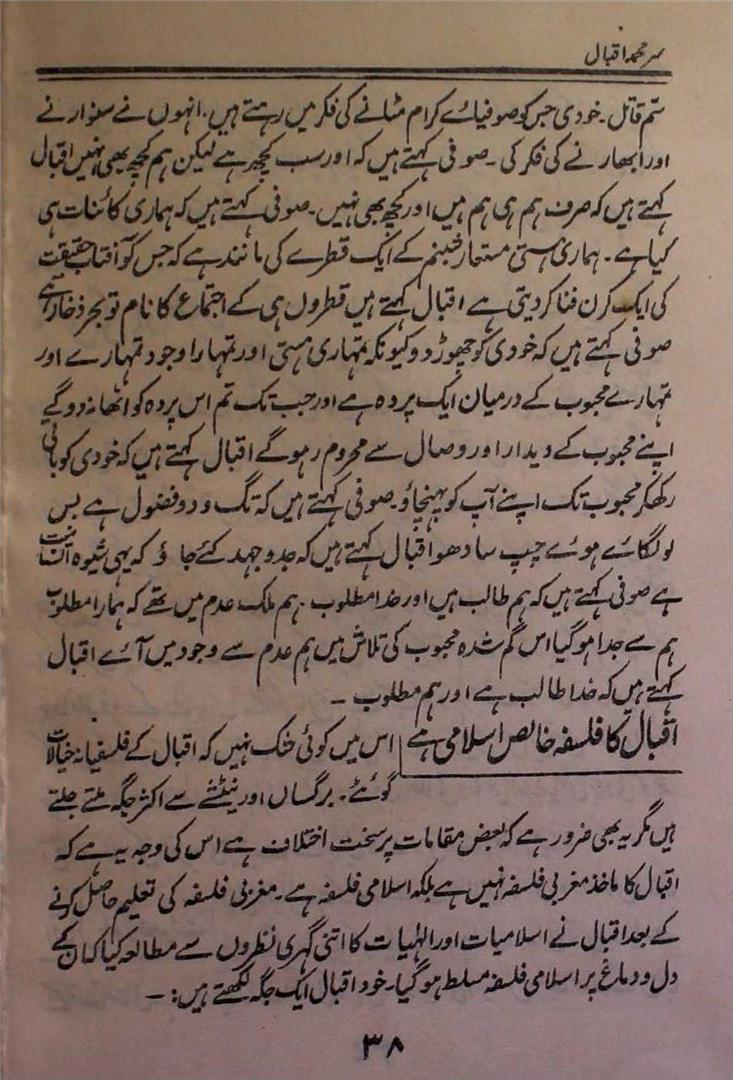 سر محمد اقبال
سَم قاتل۔ خودی جس کو صوفیائے کرام مٹانے کی فکر میں رہتے ہیں۔ انہوں نے سنوارنے
اور ابھارنے کی فکر کی۔ صوفی کہتے ہیں کہ اور سب کچھ ہے لیکن ہم کچھ بھی نہیں اقبال
کہتے ہیں کہ صرف ہم ہی ہم ہیں اور کچھ بھی نہیں۔ صوفی کہتے ہیں کہ ہماری کائنات ہی
کیا ہے۔ ہماری ہستی مستعار شبنم کے ایک قطرے کی مانند ہے کہ جس کو آفتاب حقیقت
کی ایک کرن فنا کر دیتی ہے اقبال کہتے ہیں قطروں ہی کے اجتماع کا نام تو بحر ذخار ہے
صوفی کہتے ہیں کہ خودی کو چھوڑ دو کیونکہ تمہاری ہستی اور تمہارا وجود تمہارے اور
تمہارے محبوب کے درمیان ایک پردہ ہے اور جب تک تم اس پردہ کو اٹھا نہ دو گے
اپنے محبوب کے دیدار اور وصال سے محروم رہو گے اقبال کہتے ہیں کہ خودی کو باقی
رکھکر محبوب تک اپنے آپ کو پہنچاؤ۔ صوفی کہتے ہیں کہ تگ و دو فضول ہے بس
لو لگائے ہوئے چپ سادھو اقبال کہتے ہیں کہ جدوجہد کئے جاؤ کہ یہی شیوہ انسانیت
ہے صوفی کہتے ہیں کہ ہم طالب ہیں اور خدا مطلوب۔ ہم ملک عدم میں تھے کہ ہمارا مطلوب
ہم سے جدا ہو گیا اس گم شدہ محبوب کی تلاش میں ہم عدم سے وجود میں آئے اقبال
کہتے ہیں کہ خدا طالب ہے اور ہم مطلوب ۔
اقبال کا فلسفہ خالص اسلامی ہے اس میں کوئی شک نہیں کہ اقبال کے فلسفیانہ خیالات
گوئٹے۔ برگساں اور نیٹشے سے اکثر جگہ ملتے جلتے
ہیں مگر یہ بھی ضرور ہے کہ بعض مقامات پر سخت اختلاف ہے اس کی وجہ یہ ہے کہ
اقبال کا ماخذ مغربی فلسفہ نہیں ہے بلکہ اسلامی فلسفہ ہے۔ مغربی فلسفہ کی تعلیم حاصل کرنے
کے بعد اقبال نے اسلامیات اور الہٰیات کا اتنی گہری نظروں سے مطالعہ کیا کہ ان کے
دل و دماغ پر اسلامی فلسفہ مسلط ہو گیا۔ خود اقبال ایک جگہ لکھتے ہیں:۔
۳۸